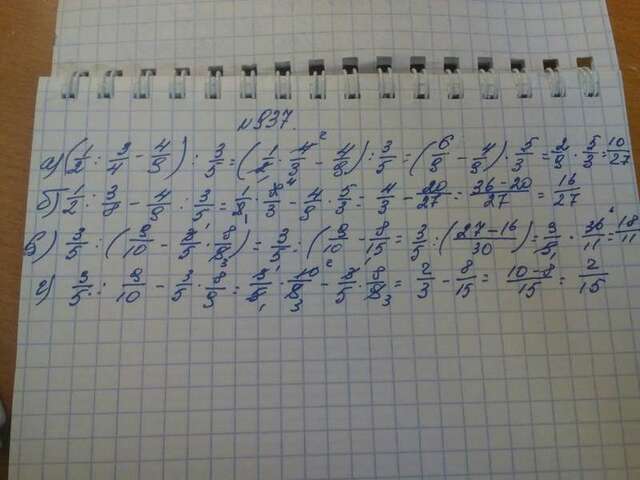 №937.
а) (1/2 : 3/4 - 4/9) : 3/5 = (1/2 · 4/3 - 4/9) : 3/5 = (6/9 - 4/9) · 5/3 = 2/9 · 5/3 = 10/27
б) 1/2 : 3/8 - 4/9 : 3/5 = 1/2 · 8/3 - 4/9 · 5/3 = 4/3 - 20/27 = 36-20/27 = 16/27
в) 3/5 : (9/10 - 3/5 · 8/9) = 3/5 : (9/10 - 8/15 = 3/5 : (27-16/30) = 3/5 · 30/11 = 18/11
г) 3/5 : 9/10 - 3/5 · 8/9 = 3/5 · 10/9 - 3/5 · 8/9 = 2/3 - 8/15 = 10-8/15 = 2/15